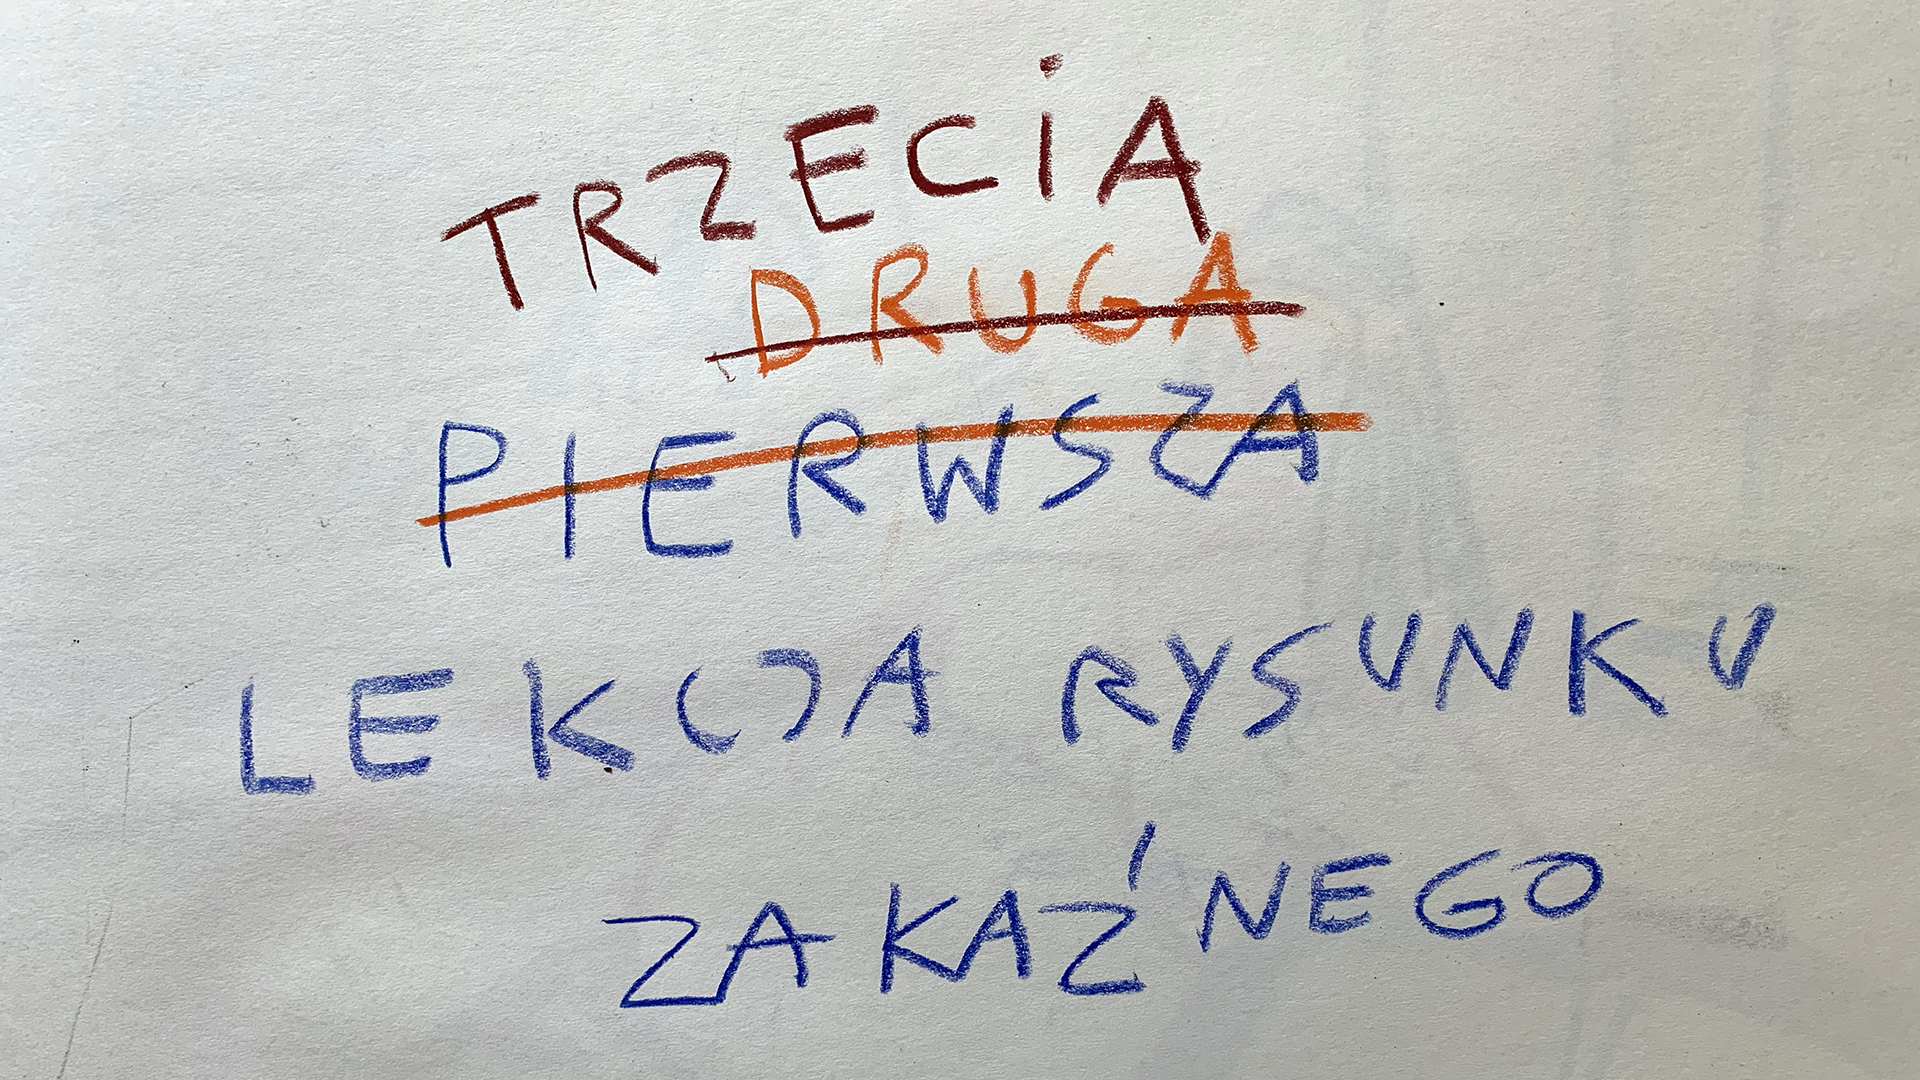 TRZECIA
DRUGA
PIERWSZA
LEKCJA RYSUNKU
ZAKAŹNEGO